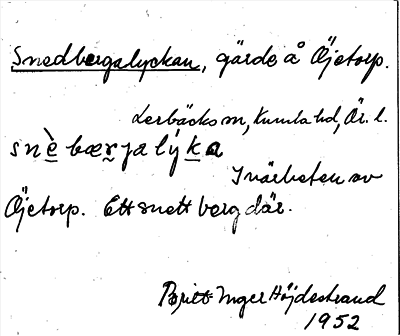 Snedbergalyckan, gärde å Öjetorp.
Lerbäcks sn, Kumla hd, Ör. l.
snè̱ bær̰ja lý k̰a
I närheten av
Öjetorp. Ett snett berg där.
Britt Inger Höjdestrand
1952